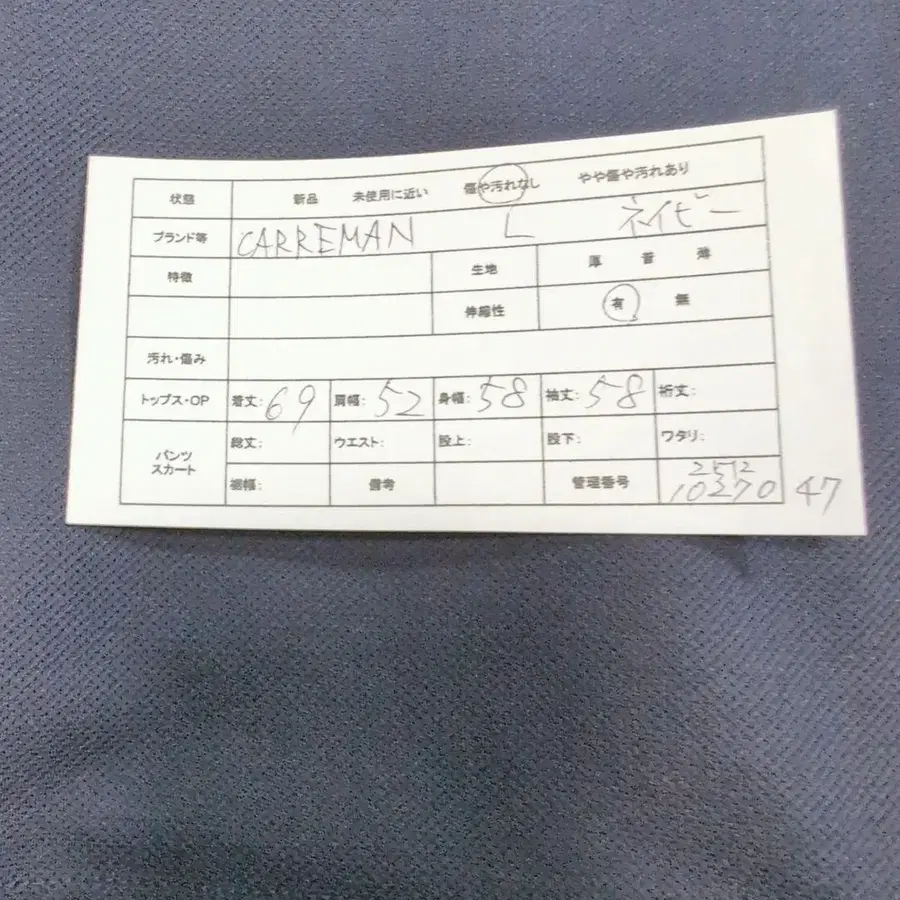 状態 新品 未使用に近い 傷や汚れなし やや傷や汚れあり
ブランド等 CARREMAN L ネイビー
特徴 生地 厚 普 薄
伸縮性 有 無
汚れ・傷み
トップス・OP 着丈:69 肩幅:52 身幅:58 袖丈:58 裄丈:
パンツ スカート 総丈: ウエスト: 股上: 股下: ワタリ:
裾幅: 備考 管理番号 2512 10270 47